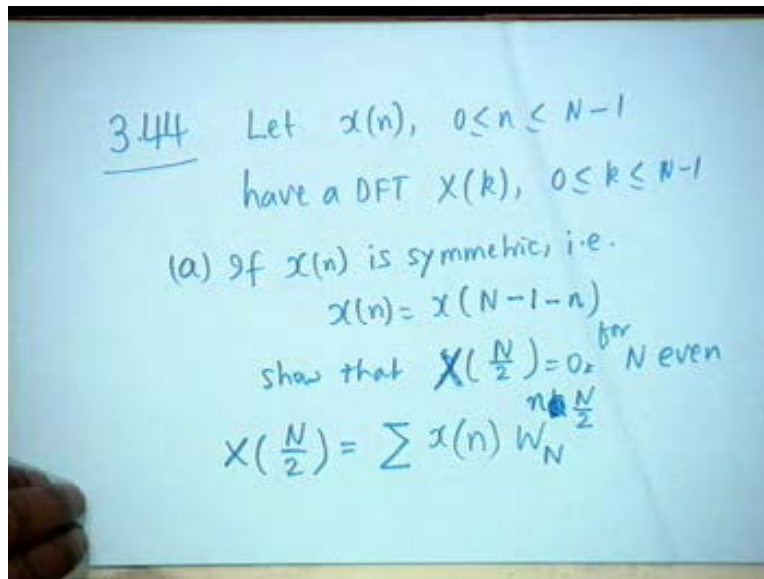 3.44 Let x(n), 0≤n≤N-1
have a DFT X(k), 0≤k≤N-1
(a) If x(n) is symmetric, i.e.
x(n)= x(N-1-n)
show that X(N/2)=0, for N even
X(N/2)= Σ x(n) W_N^{n N/2}